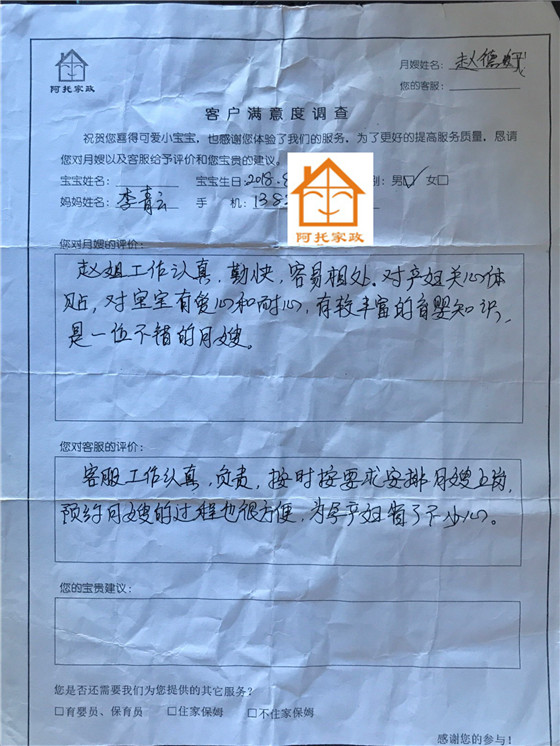 阿托家政
月嫂姓名：赵德
您的客服：
客户满意度调查
祝贺您喜得可爱小宝宝，也感谢您体验了我们的服务，为了更好的提高服务质量，恳请
您对月嫂以及客服给予评价和您宝贵的建议。
宝宝姓名： 宝宝生日：2018.8 别：男☑ 女☐
妈妈姓名：李青云 手 机：1383
阿托家政
您对月嫂的评价：
赵姐工作认真，勤快，容易相处。对产妇关心体
贴，对宝宝有爱心和耐心，有较丰富的育婴知识，
是一位不错的月嫂。
您对客服的评价：
客服工作认真，负责，按时按要求安排月嫂上岗，
预约月嫂的过程也很方便，为产妇省了不少心。
您的宝贵建议：
您是否还需要我们为您提供的其它服务？
☐育婴员、保育员 ☐住家保姆 ☐不住家保姆
感谢您的参与！